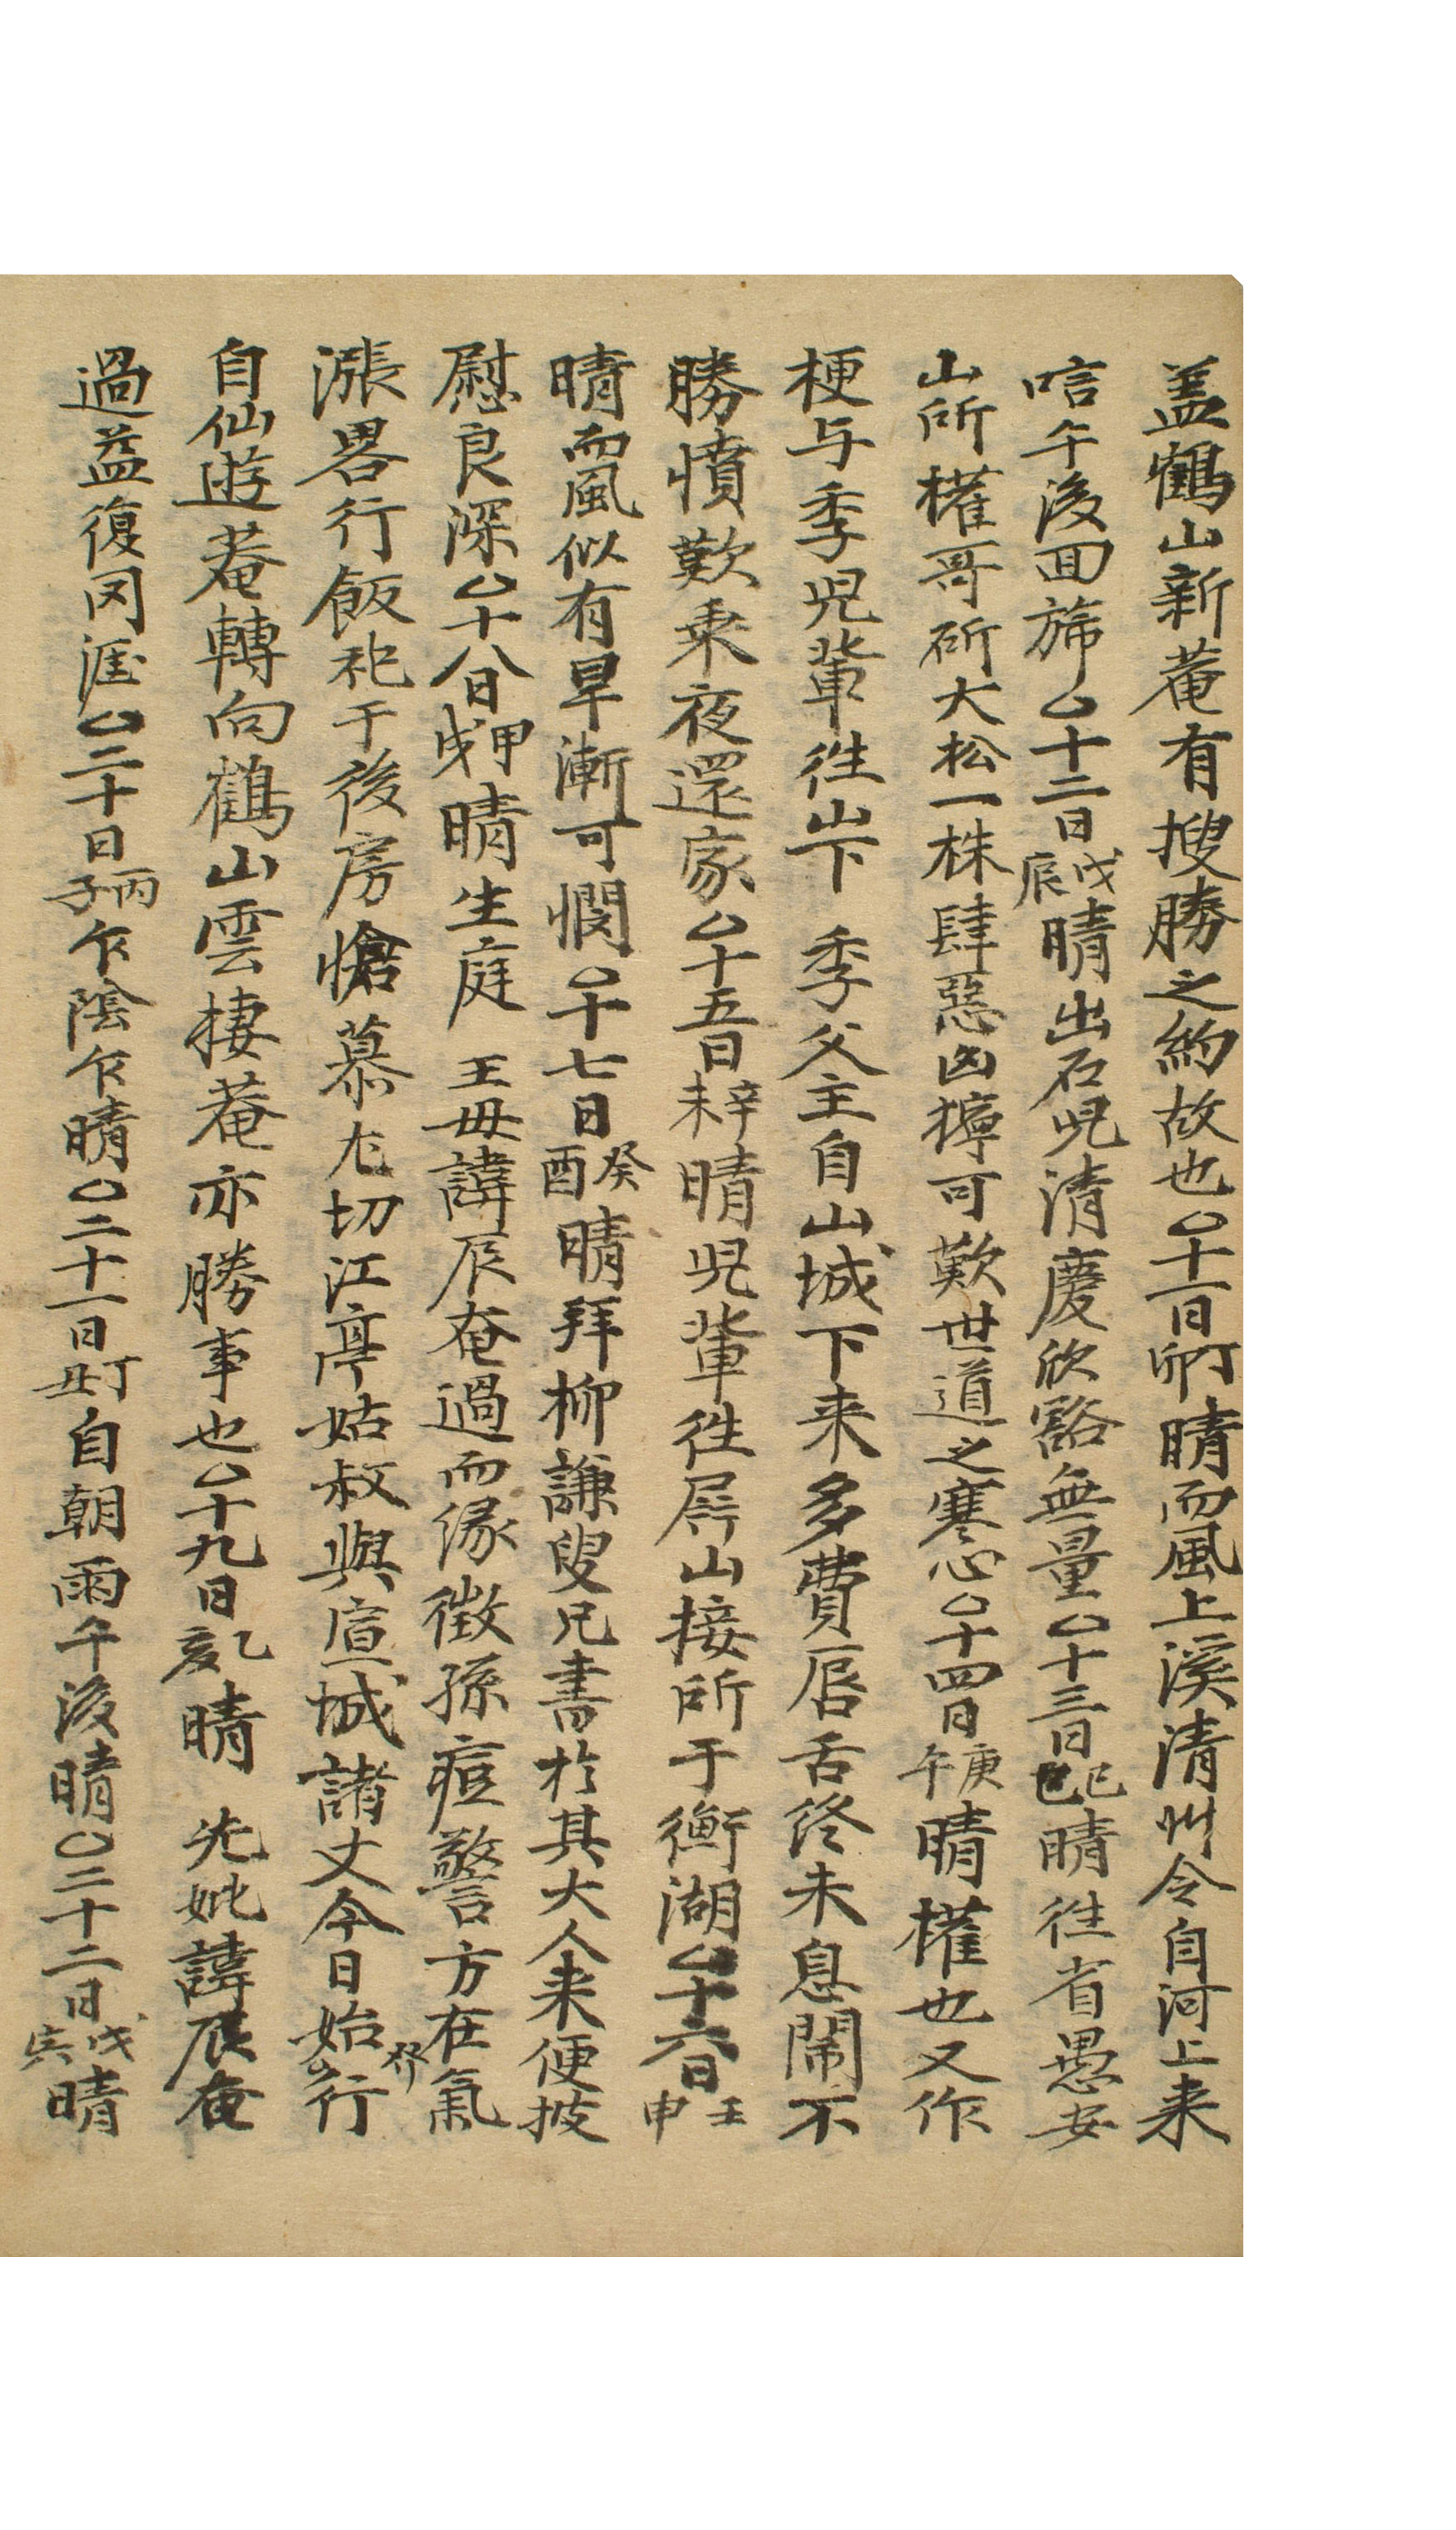 盖鶴山新菴有搜勝之約故也○十一日丁卯晴而風上溪清州令自河上来
唁午後回旆○十二日戊辰晴出石児清慶欣豁無量○十三日己巳晴往省愚安
山所權哥斫大松一株肆惡凶獐可歎世道之寒心○十四日庚午晴權也又作
梗与季児輩往山下 季父主自山城下来多費唇舌終未息鬧不
勝憤歎乘夜還家○十五日辛未晴児輩往屛山接所于衡湖○十六日壬申
晴而風似有旱漸可憫○十七日癸酉晴拜柳謙叟兄書於其大人来便披
慰良深○十八日甲戌晴生庭 王母諱辰奄過而緣徵孫痘警方在氣
漲畧行飯祀于後房愴慕尤切江亭姑叔與宣城諸丈今日始行
自仙遊菴轉向鶴山雲棲菴亦勝事也○十九日乙亥晴 先妣諱辰奄
過益復罔涯○二十日丙子乍陰乍晴○二十一日丁丑自朝雨午後晴○二十二日戊寅晴